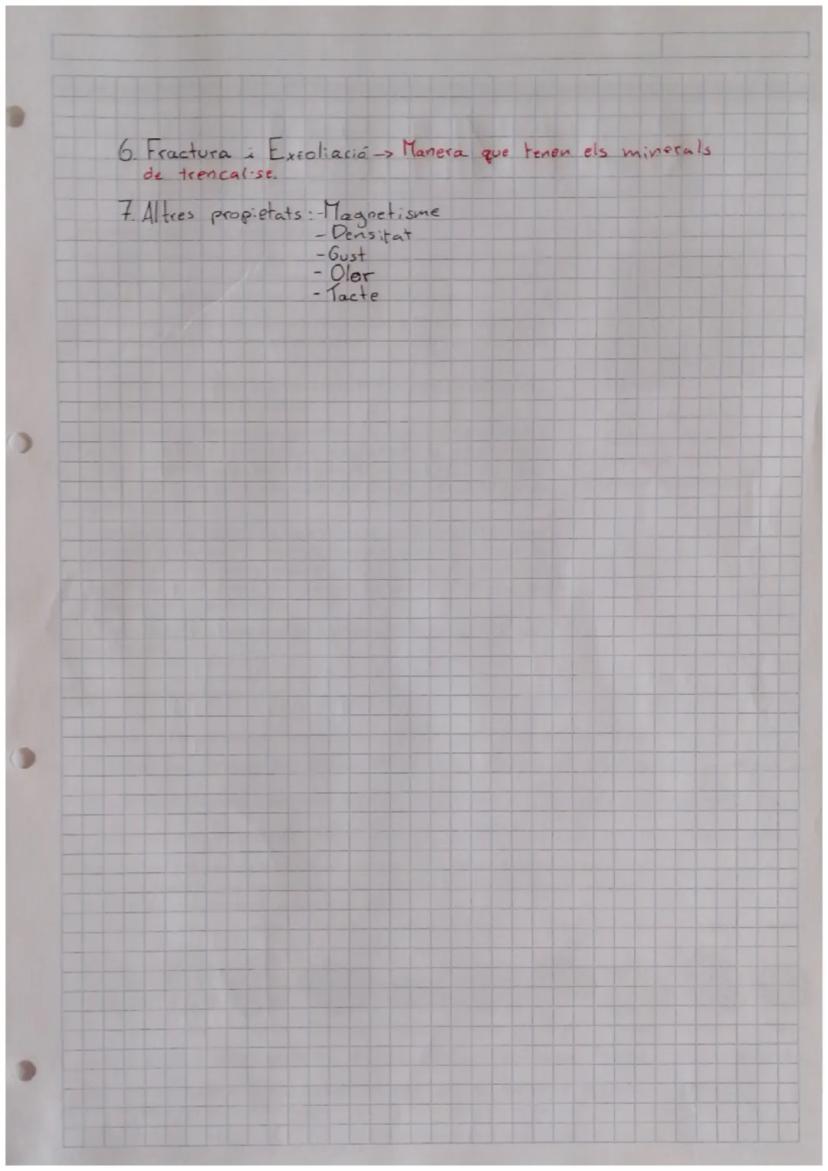 6. Fractura i Exfoliació → Manera que tenen els minerals
de trencal·se.
7. Altres propietats: -Magnetisme
- Densitat
- Gust
- Olor
- Tacte